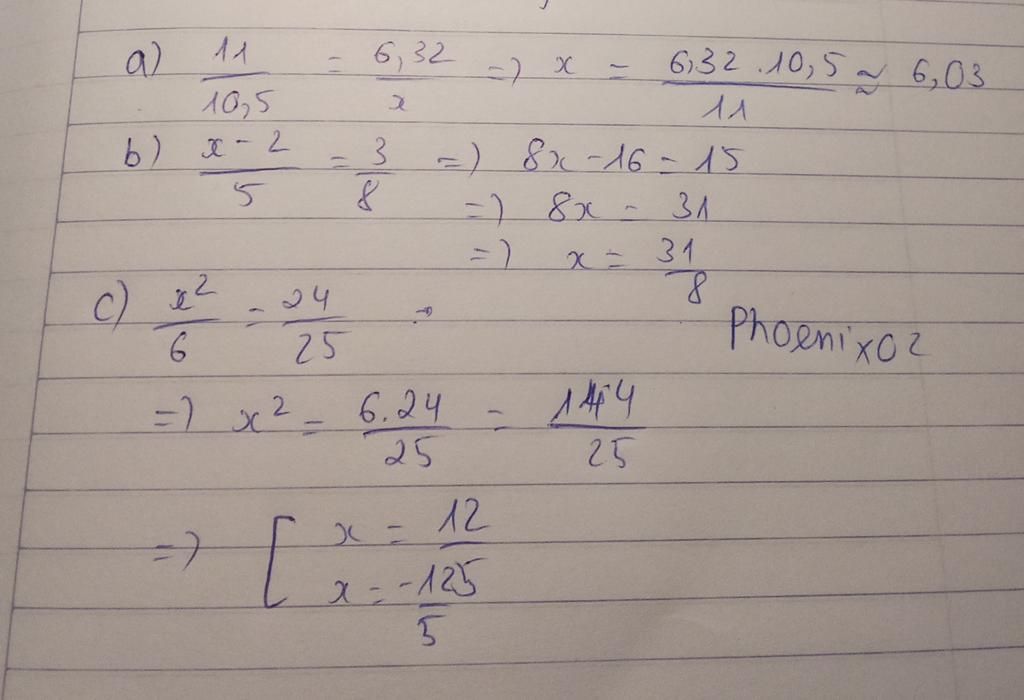 a) 11/10,5 = 6,32/x => x = 6,32 . 10,5/11 ≈ 6,03
b) x - 2/5 = 3/8 => 8x - 16 = 15
=> 8x = 31
=> x = 31/8
c) x²/6 = 24/25 →
Phoenix02
=> x² = 6.24/25 = 144/25
=> [ x = 12/5
x = -12/5